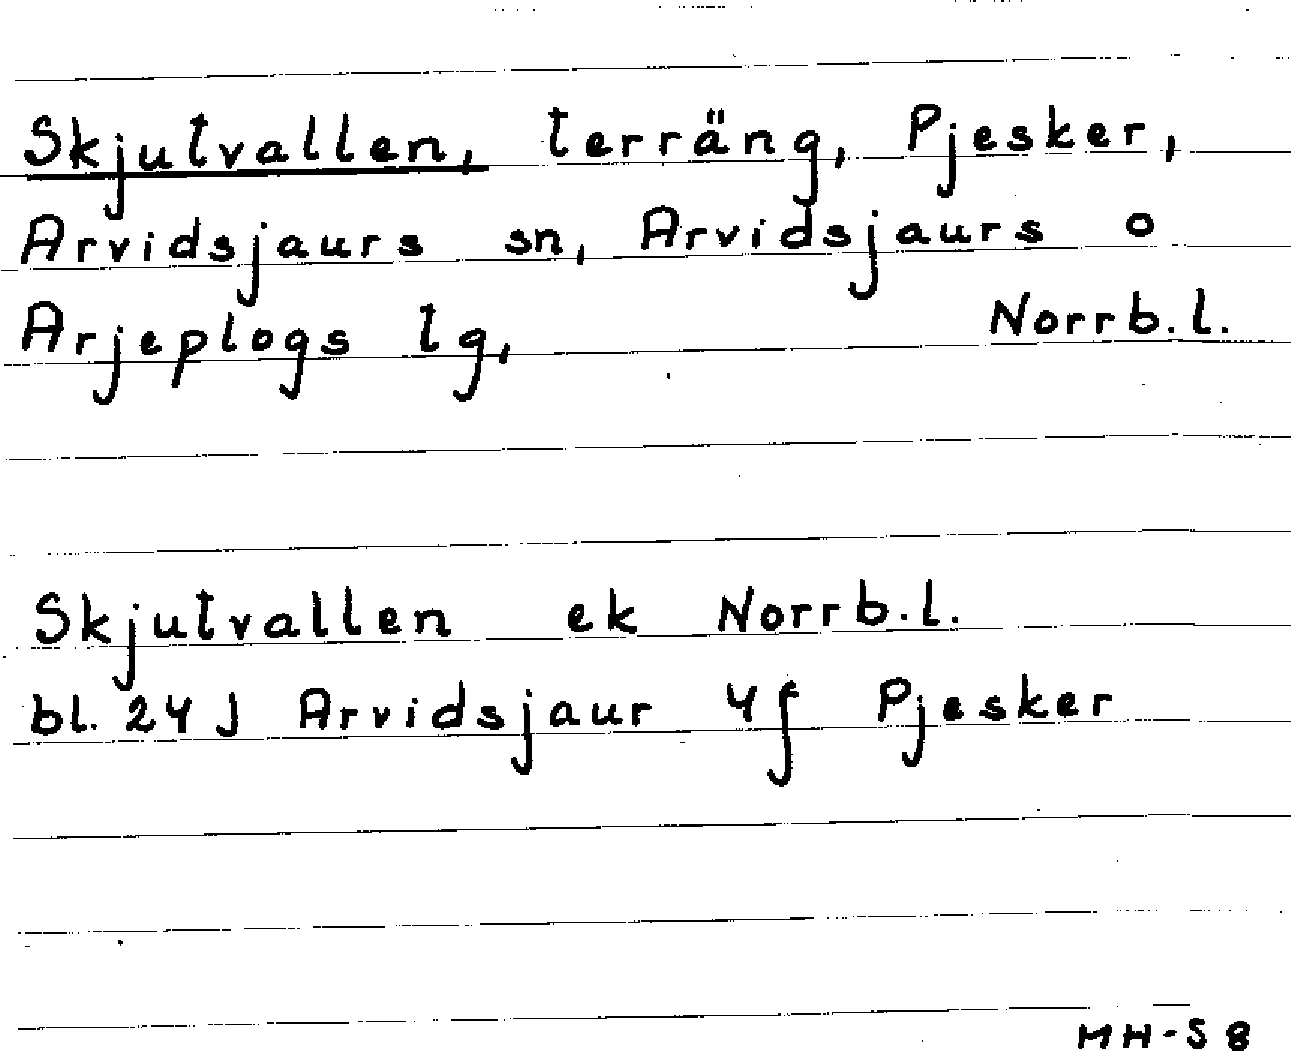 Skjutvallen, terräng, Pjesker,
Arvidsjaurs sn, Arvidsjaurs o
Arjeplogs tg, Norrb.l.
Skjutvallen ek Norrb.l.
bl. 24J Arvidsjaur 4f Pjesker
MH-58